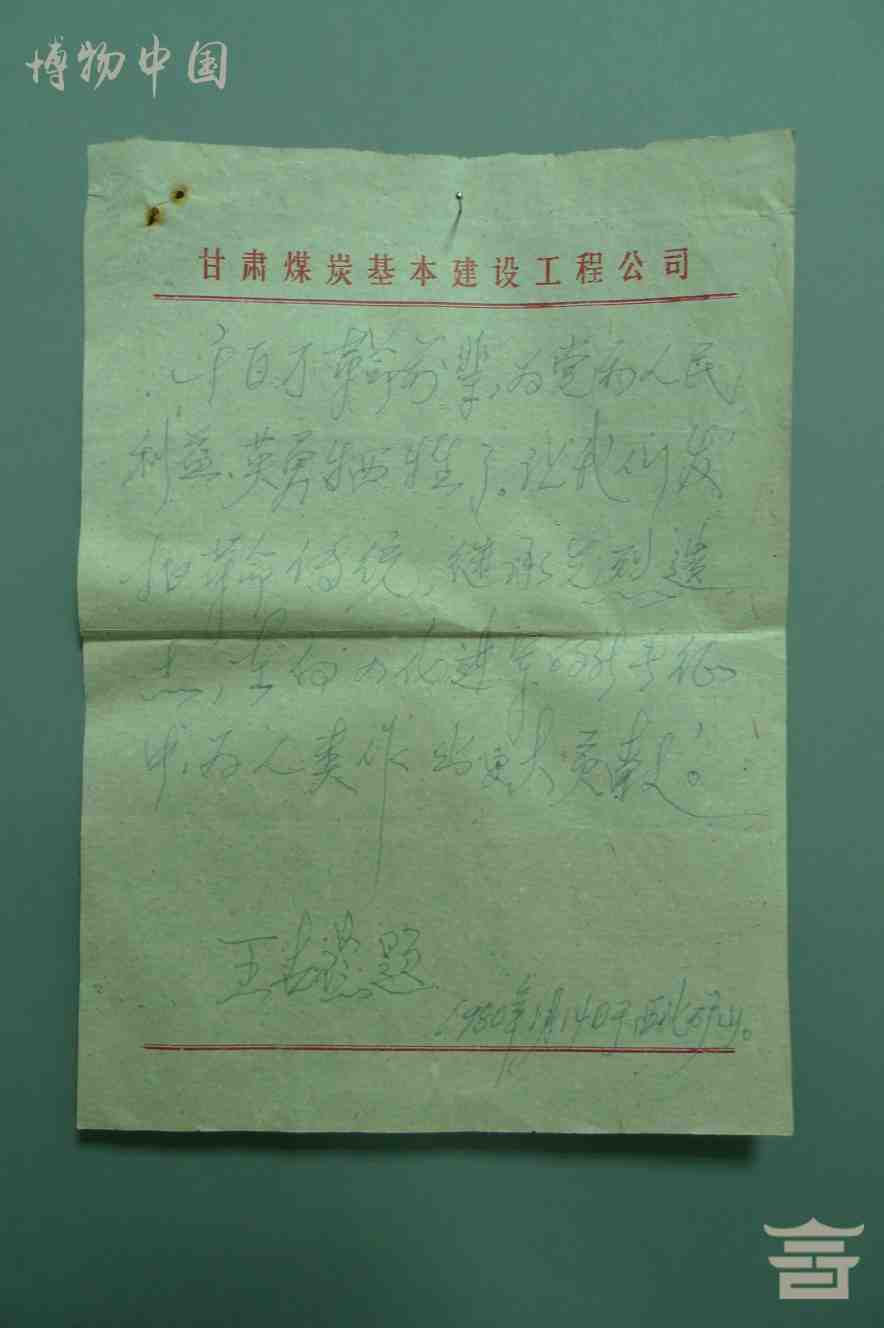 博物中国
甘肃煤炭基本建设工程公司
千百万革命前辈,为党为人民
利益、英勇牺牲了。让我们发
扬革命传统,继承先烈遗
志,在向四化进军的新长征
中,为人类作出更大贡献。
王 题
1980年1月14日于西北矿山。